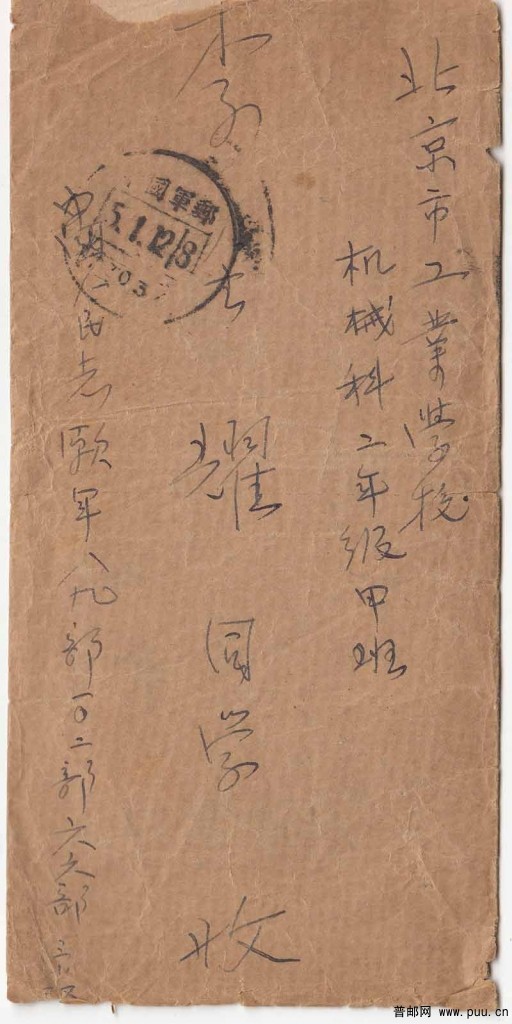 北京市工業学校
机械科二年级甲班
李士耀同学 收
中國人民志願军八九部一〇二部六大部
郵軍國
5.1.12.18
普邮网 www.puu.cn